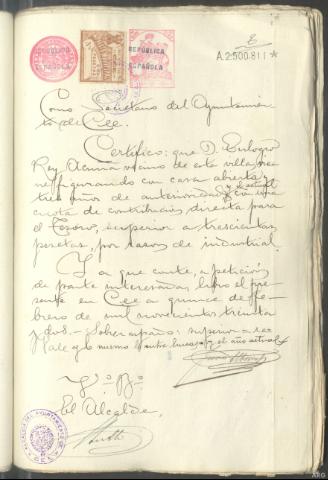 E
A.2.500.811*
REPÚBLICA
ESPAÑOLA
REPÚBLICA
ESPAÑOLA
Como Secretario del Ayuntamien-
to de Cee.
Certifico: que D. Eulogio
Rey Acuña vecino de esta villa, viene
figurando con casa abierta,
tres años de anterioridad y el actual, con una
cuota de contribución directa para
el Tesoro, superior a trescientas
pesetas, por razón de industrial.
Y a que conste, a petición
de parte interesada, libro el pre-
sente en Cee a quince de Fe-
brero de mil novecientos treinta
y dos.- Sobre raspado: superior a
Vale y lo mismo entre líneas y el año actual
Vº. Bº.
El Alcalde,
ALCALDIA DEL AYUNTAMIENTO DE
ARG